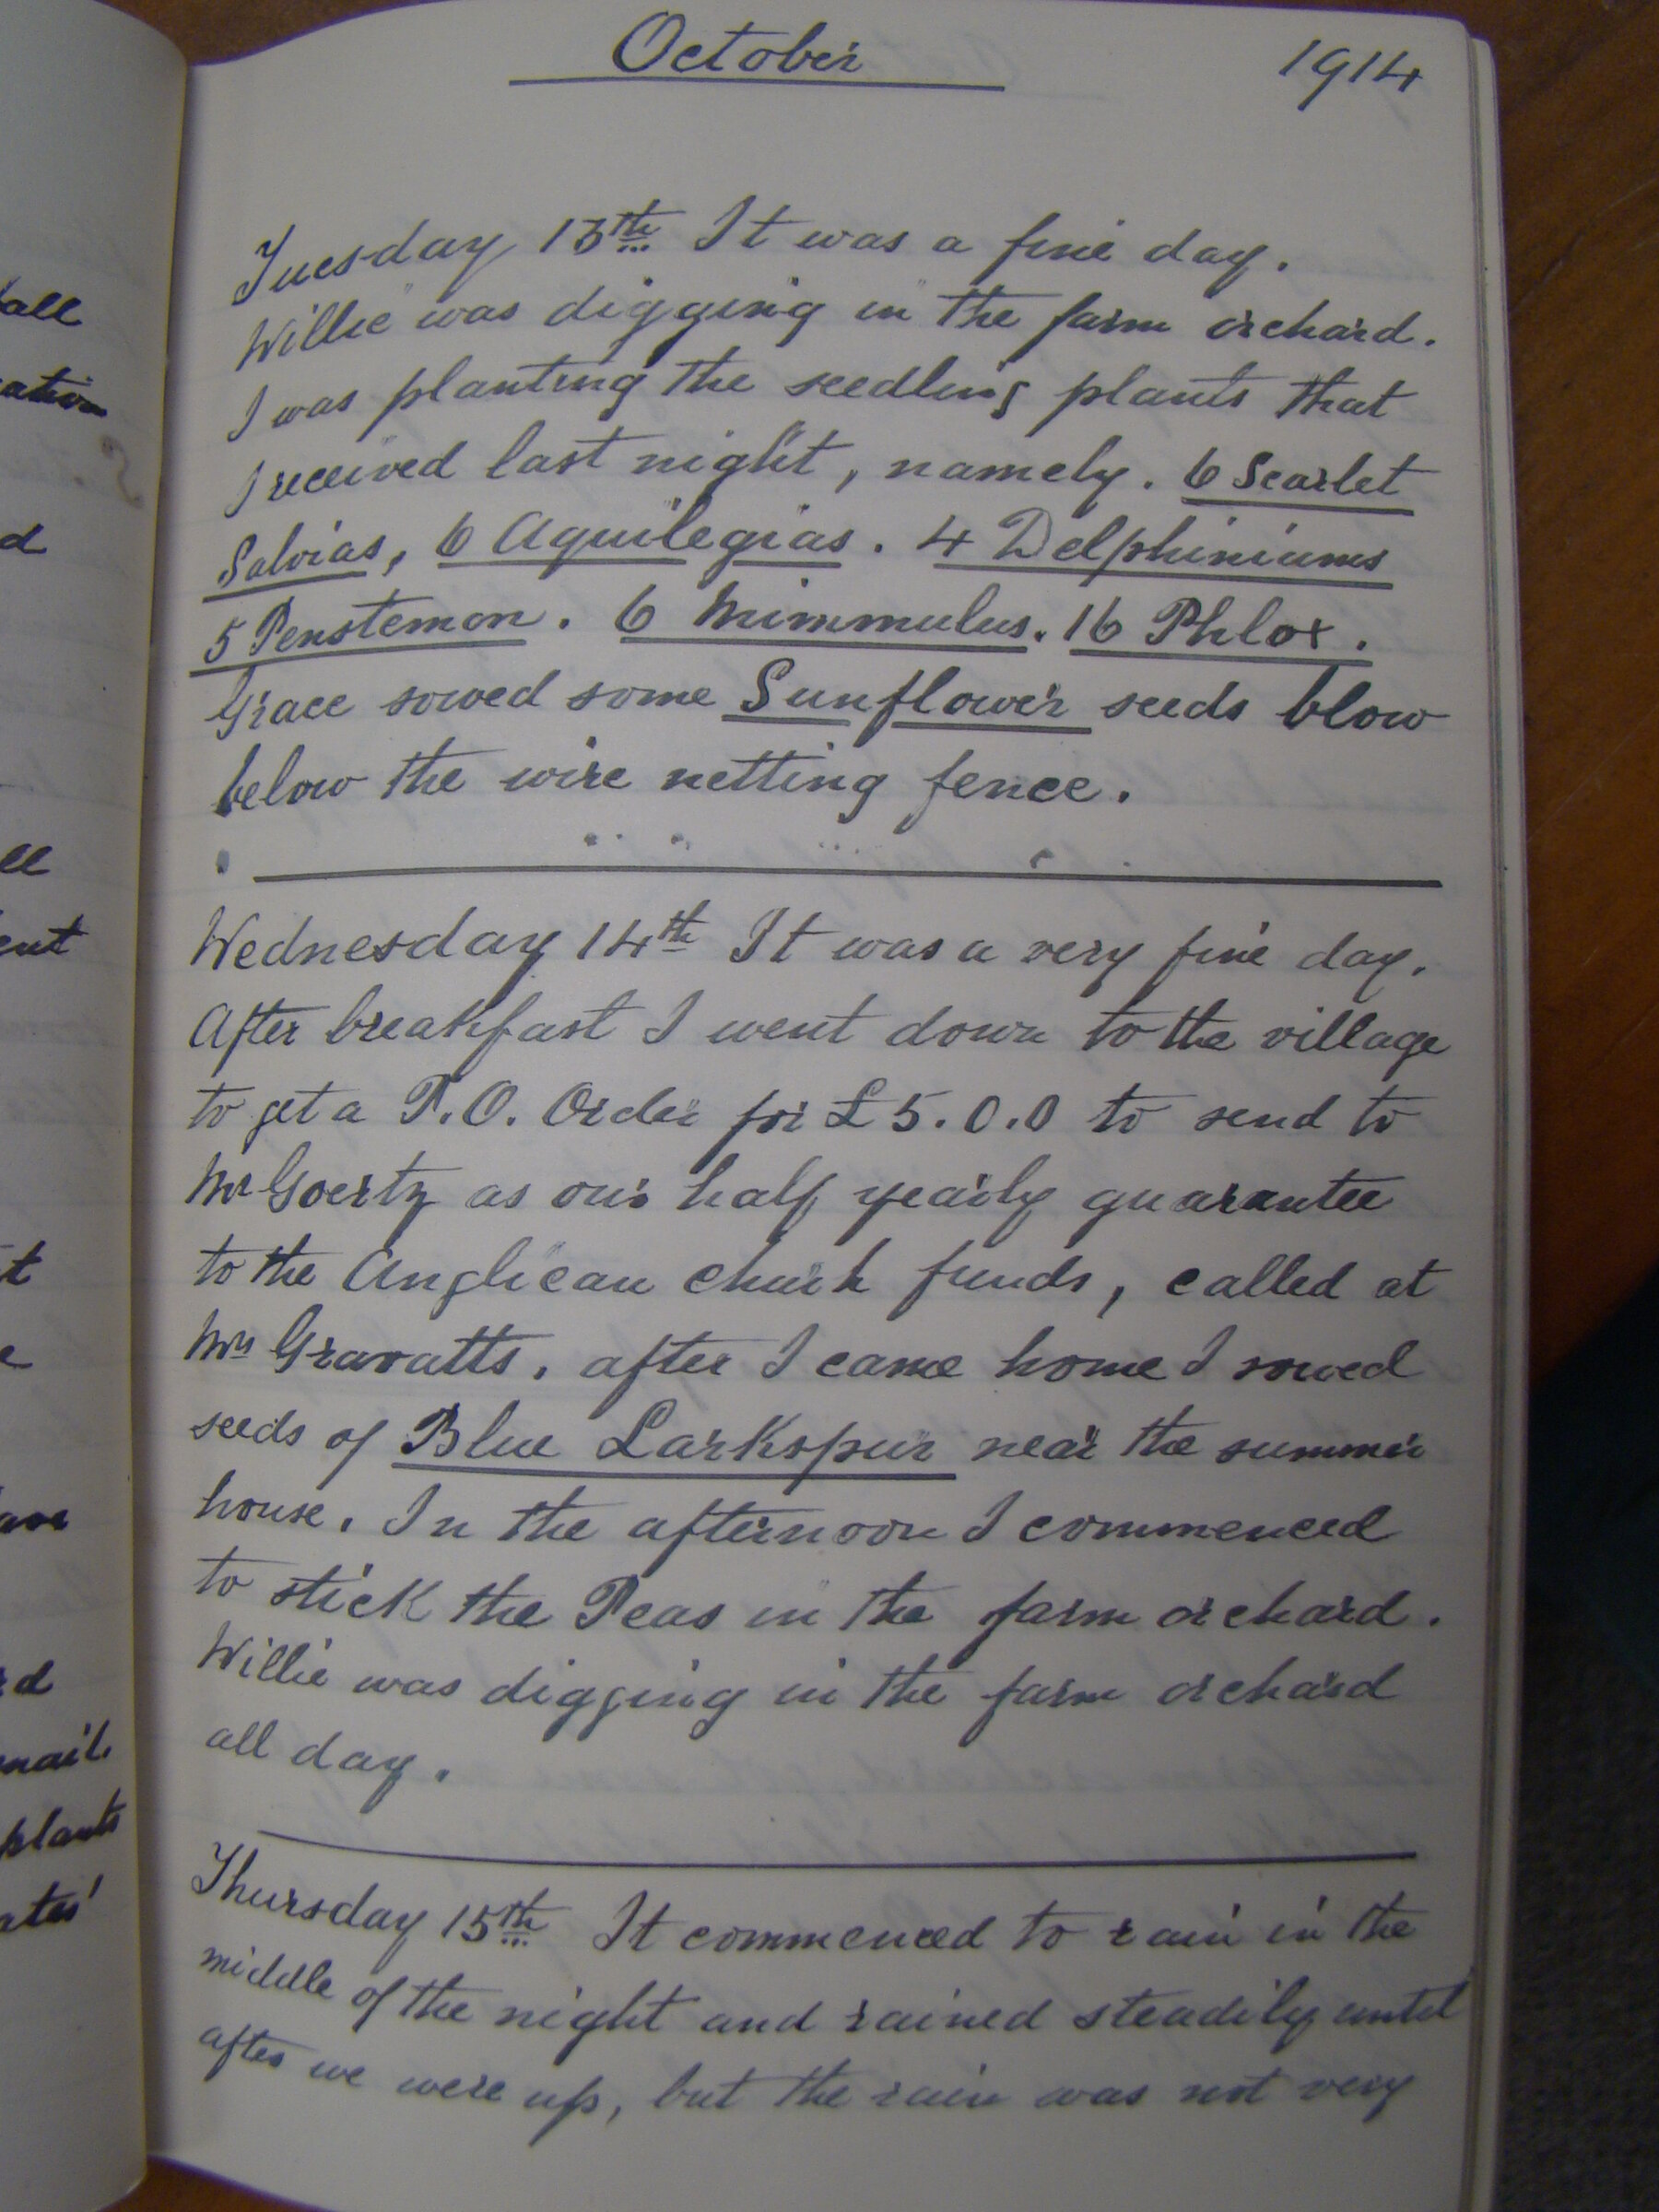 all
ation
d
ll
ent
t
e
d
mail
plants
October 1914
Tuesday 13th It was a fine day.
Willie was digging in the farm orchard.
I was planting the seedling plants that
I received last night, namely. 6 Scarlet
Salvias, 6 Aquilegias. 4 Delphiniums
5 Penstemon. 6 Mimmulus. 16 Phlox.
Grace sowed some Sunflower seeds blow
below the wire netting fence.
Wednesday 14th It was a very fine day.
After breakfast I went down to the village
to get a P.O. Order for £5.0.0 to send to
Mr Goertz as our half yearly guarantee
to the Anglican church funds, called at
Mrs Gravatts. after I came home I sowed
seeds of Blue Larkspur near the summer
house. In the afternoon I commenced
to stick the Peas in the farm orchard.
Willie was digging in the farm orchard
all day.
Thursday 15th It commenced to rain in the
middle of the night and rained steadily until
after we were up, but the rain was not very